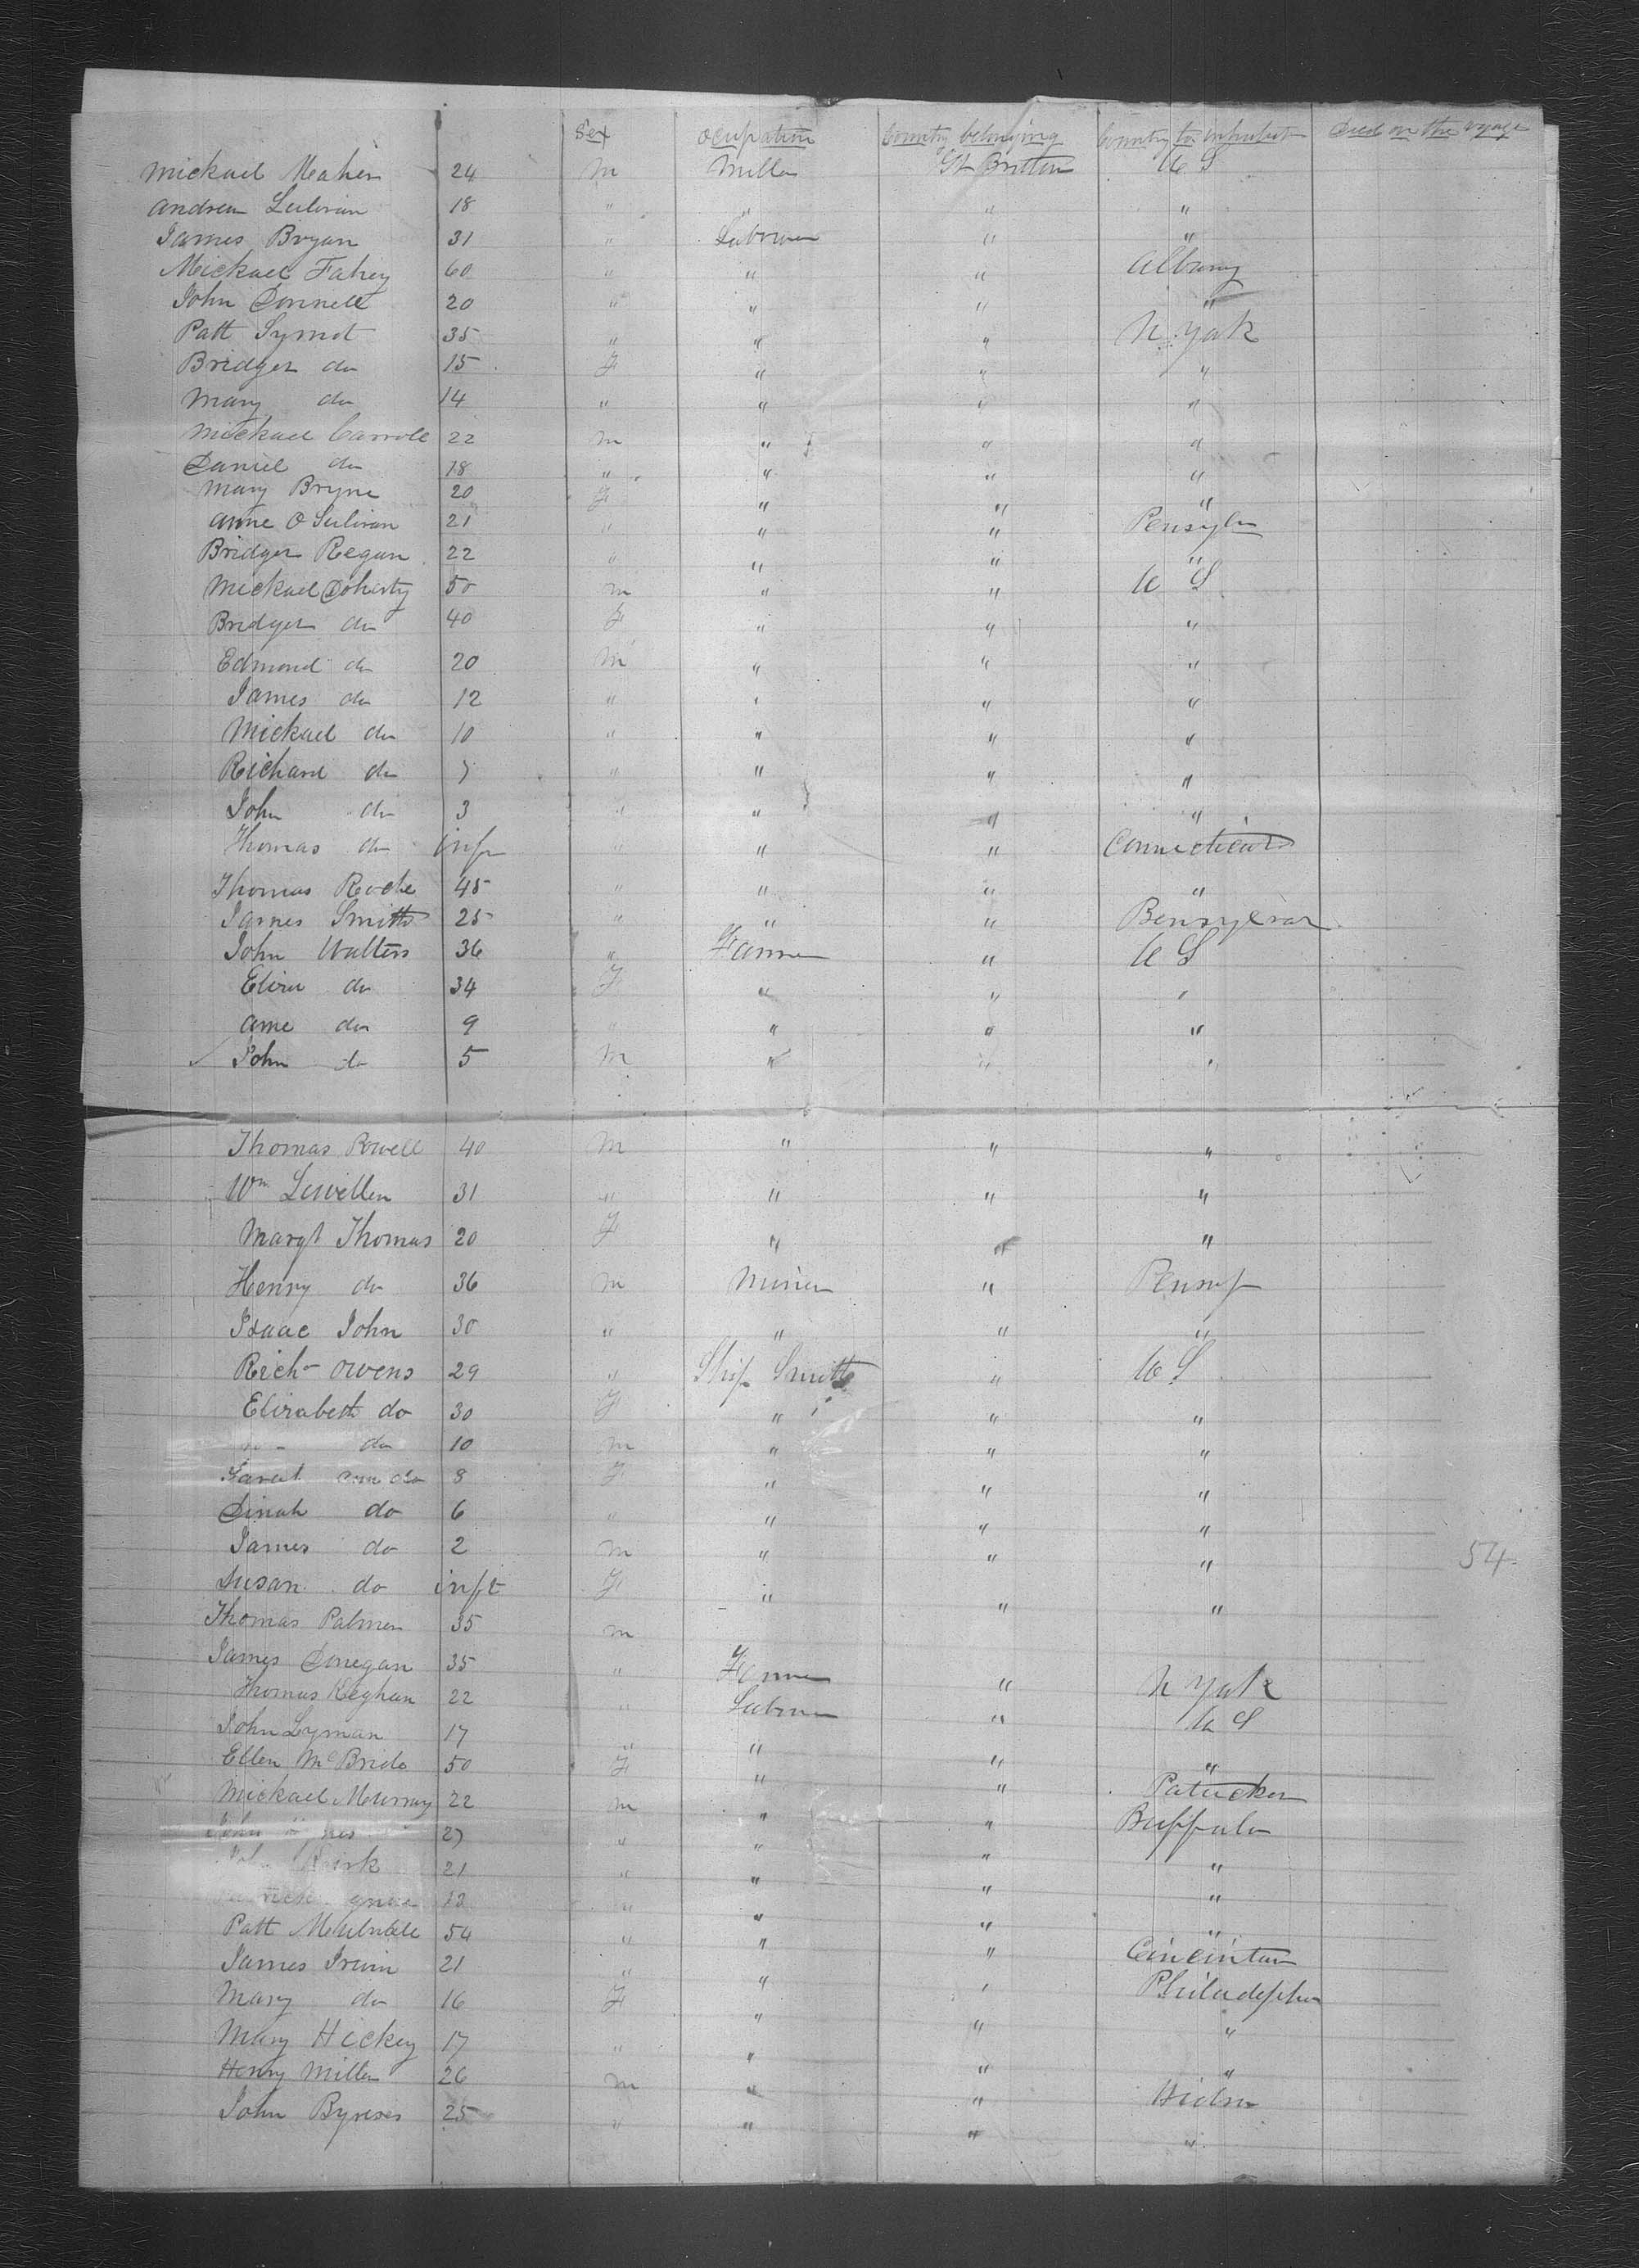 Sex ocupation Country belonging Country to inhabit Died on the voyage
Mickael Maher 24 m Miller Gt Brittin U S
Andrew Sulivan 18 " " " "
James Bryan 31 " Labourer " "
Mickael Fahey 60 " " " Albany
John Donnell 20 " " " "
Patt Symot 35 " " " N. York
Bridget do 15 F " " "
Mary do 14 " " " "
Mickael Carroll 22 m " " "
Daniel do 18 " " " "
Mary Bryne 20 F " " "
Anne O Sulivan 21 " " " Pensyln
Bridget Regan 22 " " " "
Mickael Doherty 50 m " " U S
Bridget do 40 F " " "
Edmond do 20 m " " "
James do 12 " " " "
Mickael do 10 " " " "
Richard do 7 " " " "
John do 3 " " " "
Thomas do inft " " " Connecticut
Thomas Roche 45 " " " "
James Smith 25 " " " Bensylvar
John Walters 36 " Farmer " U S
Eliza do 34 F " " "
Anne do 9 " " " "
John do 5 m " " "
Thomas Powell 40 m " " "
Wm Lewellen 31 " " " "
Margt Thomas 20 F " " "
Henry do 36 m Miner " Pensy
Isaac John 30 " " " "
Richd Owens 29 " Ship Smith " U S
Elizabeth do 30 F " " "
do 10 m " " "
Sarah Ann do 8 F " " "
Dinah do 6 " " " "
James do 2 m " " " 54
Susan do inft F " " "
Thomas Palmer 35 m
James Donegan 35 " Farmer " N York
Thomas Keghan 22 " Labourer " U S
John Lyman 17 " " " "
Ellen McBride 50 F " " Patucket
Mickael Murray 22 m " " Buffalo
John 27 " " " "
John Quirk 21 " " " "
12 " " " "
Patt Mulvall 54 " " " Cincintan
James Irwin 21 " " " Philadepha
Mary do 16 F " " "
Mary Hickey 17 " " " "
Henry Miller 26 m " "
John Byrnes 25 " " " "